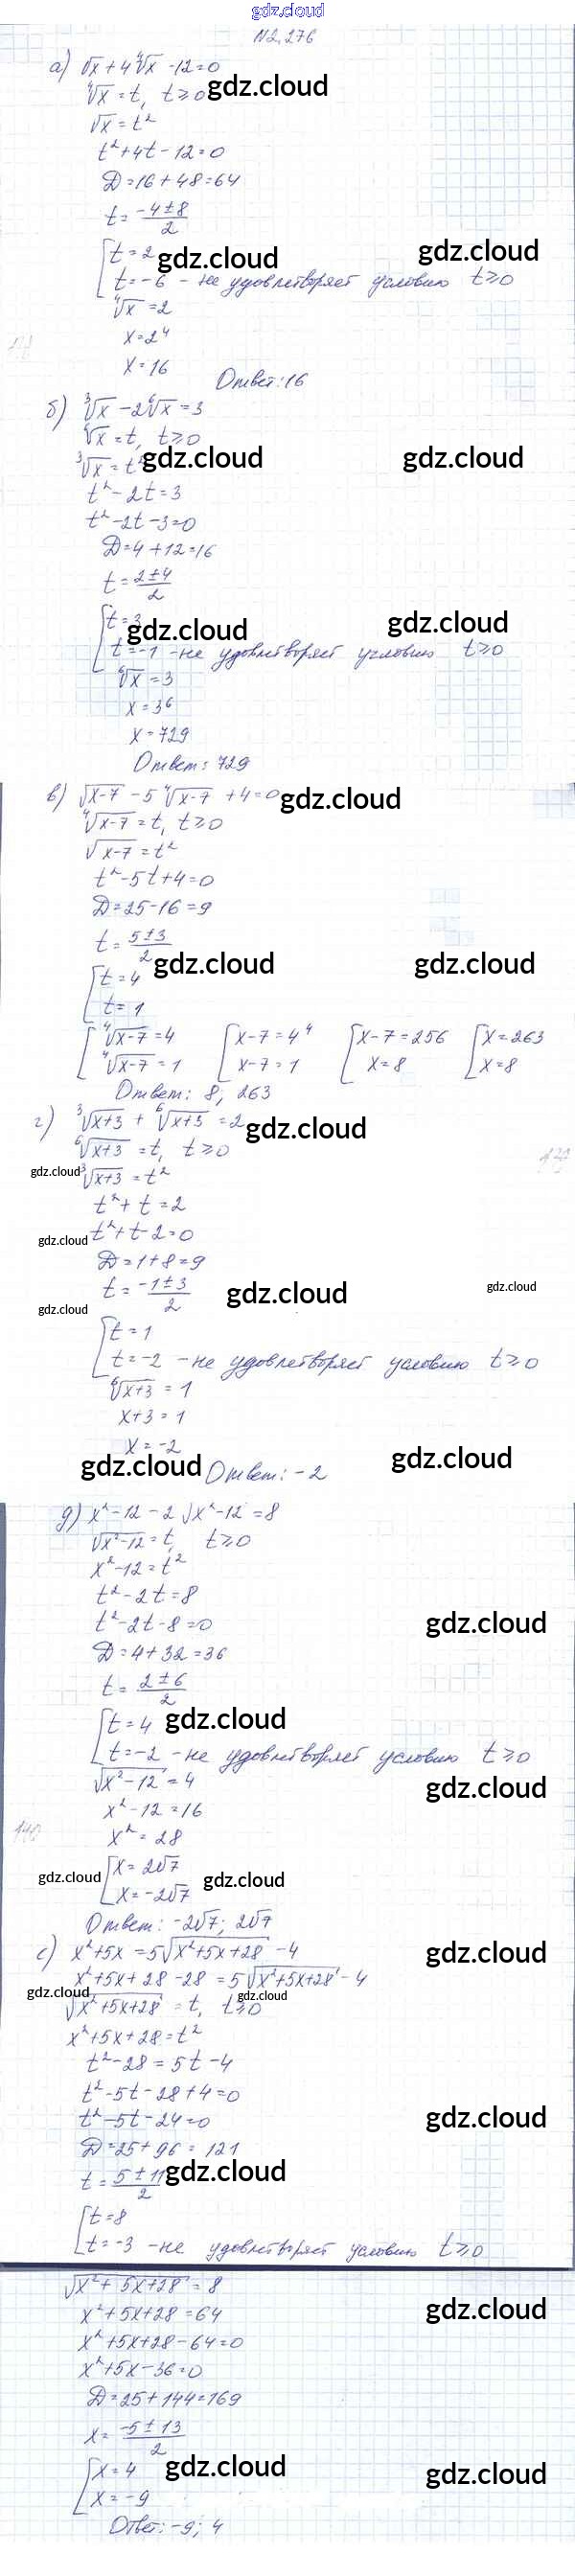 gdz.cloud
N2.276
а) √x + 4⁴√x - 12 = 0
⁴√x = t, t ≥ 0 gdz.cloud
√x = t²
t² + 4t - 12 = 0
D = 16 + 48 = 64
t = (-4 ± 8)/2
[ t = 2 gdz.cloud gdz.cloud
t = -6 - не удовлетворяет условию t ≥ 0
⁴√x = 2
x = 2⁴
x = 16
Ответ: 16
б) ³√x - 2⁶√x = 3
⁶√x = t, t ≥ 0
³√x = t² gdz.cloud gdz.cloud
t² - 2t = 3
t² - 2t - 3 = 0
D = 4 + 12 = 16
t = (2 ± 4)/2
[ t = 3 gdz.cloud gdz.cloud
t = -1 - не удовлетворяет условию t ≥ 0
⁶√x = 3
x = 3⁶
x = 729
Ответ: 729
в) √(x-7) - 5⁴√(x-7) + 4 = 0 gdz.cloud
⁴√(x-7) = t, t ≥ 0
√(x-7) = t²
t² - 5t + 4 = 0
D = 25 - 16 = 9
t = (5 ± 3)/2
[ t = 4 gdz.cloud gdz.cloud
t = 1
[ ⁴√(x-7) = 4 [ x-7 = 4⁴ [ x-7 = 256 [ x = 263
⁴√(x-7) = 1 x-7 = 1 x = 8 x = 8
Ответ: 8, 263
г) ³√(x+3) + ⁶√(x+3) = 2 gdz.cloud
⁶√(x+3) = t, t ≥ 0
gdz.cloud ³√(x+3) = t²
t² + t = 2
gdz.cloud t² + t - 2 = 0
D = 1 + 8 = 9
t = (-1 ± 3)/2 gdz.cloud gdz.cloud
gdz.cloud
[ t = 1
t = -2 - не удовлетворяет условию t ≥ 0
⁶√(x+3) = 1
x + 3 = 1
x = -2
gdz.cloud Ответ: -2 gdz.cloud
д) x² - 12 - 2√(x² - 12) = 8
√(x² - 12) = t, t ≥ 0
x² - 12 = t²
t² - 2t = 8
t² - 2t - 8 = 0 gdz.cloud
D = 4 + 32 = 36
t = (2 ± 6)/2
[ t = 4 gdz.cloud
t = -2 - не удовлетворяет условию t ≥ 0
√(x² - 12) = 4 gdz.cloud
x² - 12 = 16
x² = 28
gdz.cloud [ x = 2√7 gdz.cloud
x = -2√7
Ответ: -2√7; 2√7
е) x² + 5x = 5√(x² + 5x + 28) - 4 gdz.cloud
x² + 5x + 28 - 28 = 5√(x² + 5x + 28) - 4
gdz.cloud gdz.cloud
√(x² + 5x + 28) = t, t ≥ 0
x² + 5x + 28 = t²
t² - 28 = 5t - 4
t² - 5t - 28 + 4 = 0
t² - 5t - 24 = 0 gdz.cloud
D = 25 + 96 = 121
t = (5 ± 11)/2 gdz.cloud
[ t = 8
t = -3 - не удовлетворяет условию t ≥ 0
√(x² + 5x + 28) = 8
x² + 5x + 28 = 64 gdz.cloud
x² + 5x + 28 - 64 = 0
x² + 5x - 36 = 0
D = 25 + 144 = 169
x = (-5 ± 13)/2
[ x = 4 gdz.cloud gdz.cloud
x = -9
Ответ: -9; 4